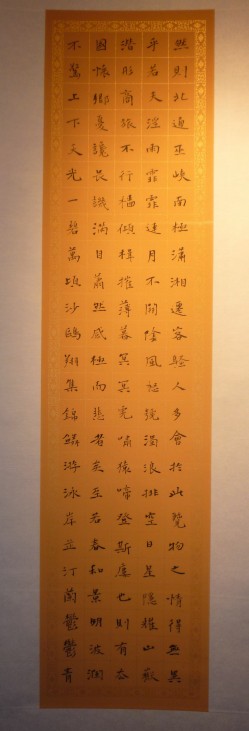 然則北通巫峽南極瀟湘遷客騷人多會於此覽物之情得無異
乎若夫淫雨霏霏連月不開陰風怒號濁浪排空日星隱耀山嶽
潛形商旅不行檣傾楫摧薄暮冥冥虎嘯猿啼登斯樓也則有去
國懷鄉憂讒畏譏滿目蕭然感極而悲者矣至若春和景明波瀾
不驚上下天光一碧萬頃沙鷗翔集錦鱗游泳岸芷汀蘭鬱鬱青